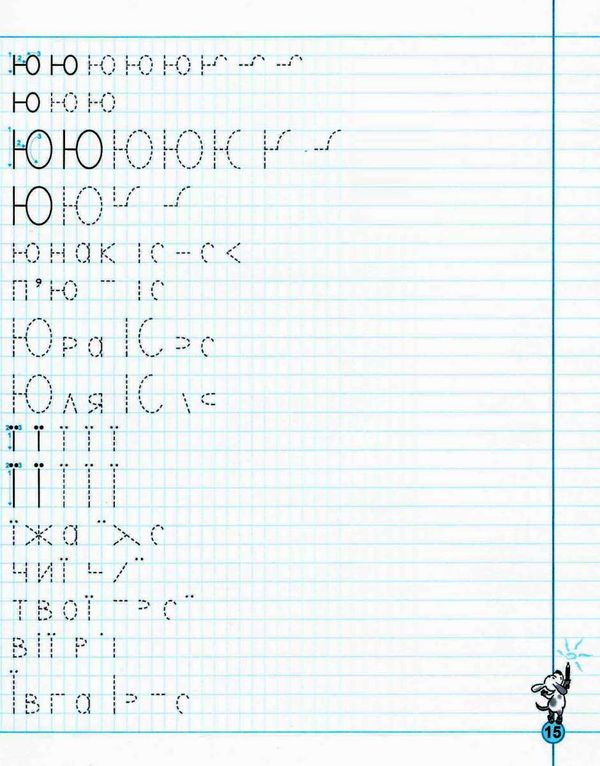 ю ю ю ю ю
ю ю ю
Ю Ю Ю Ю
Ю Ю
юнак
п'ю
Юра
Юля
ї ї ї ї ї
Ї Ї Ї Ї Ї
їжа
чиї
твої
вії
Ївга
15